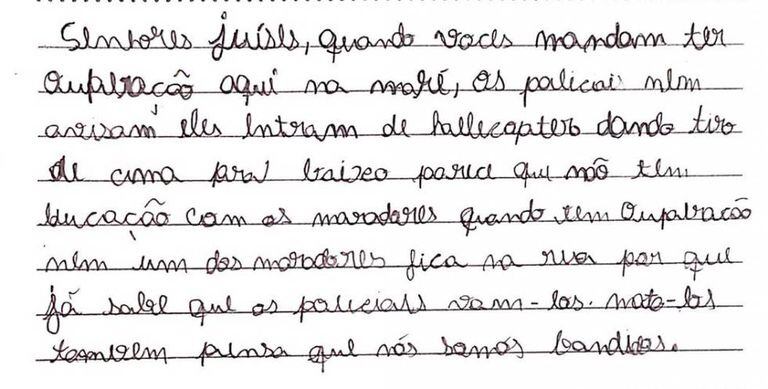 Senhores juíses, quando voces mandam ter
oupalração aqui na maré, os policai nem
avisam eles entram de hallecopter dando tiro
de cima para baixo parece que não tem
educação com os maradores quando tem oupalração
nem um dos moradores fica na rua por que
já sabe que os policiais vam-los. mata-los
também pensa que nós somos bandidos.